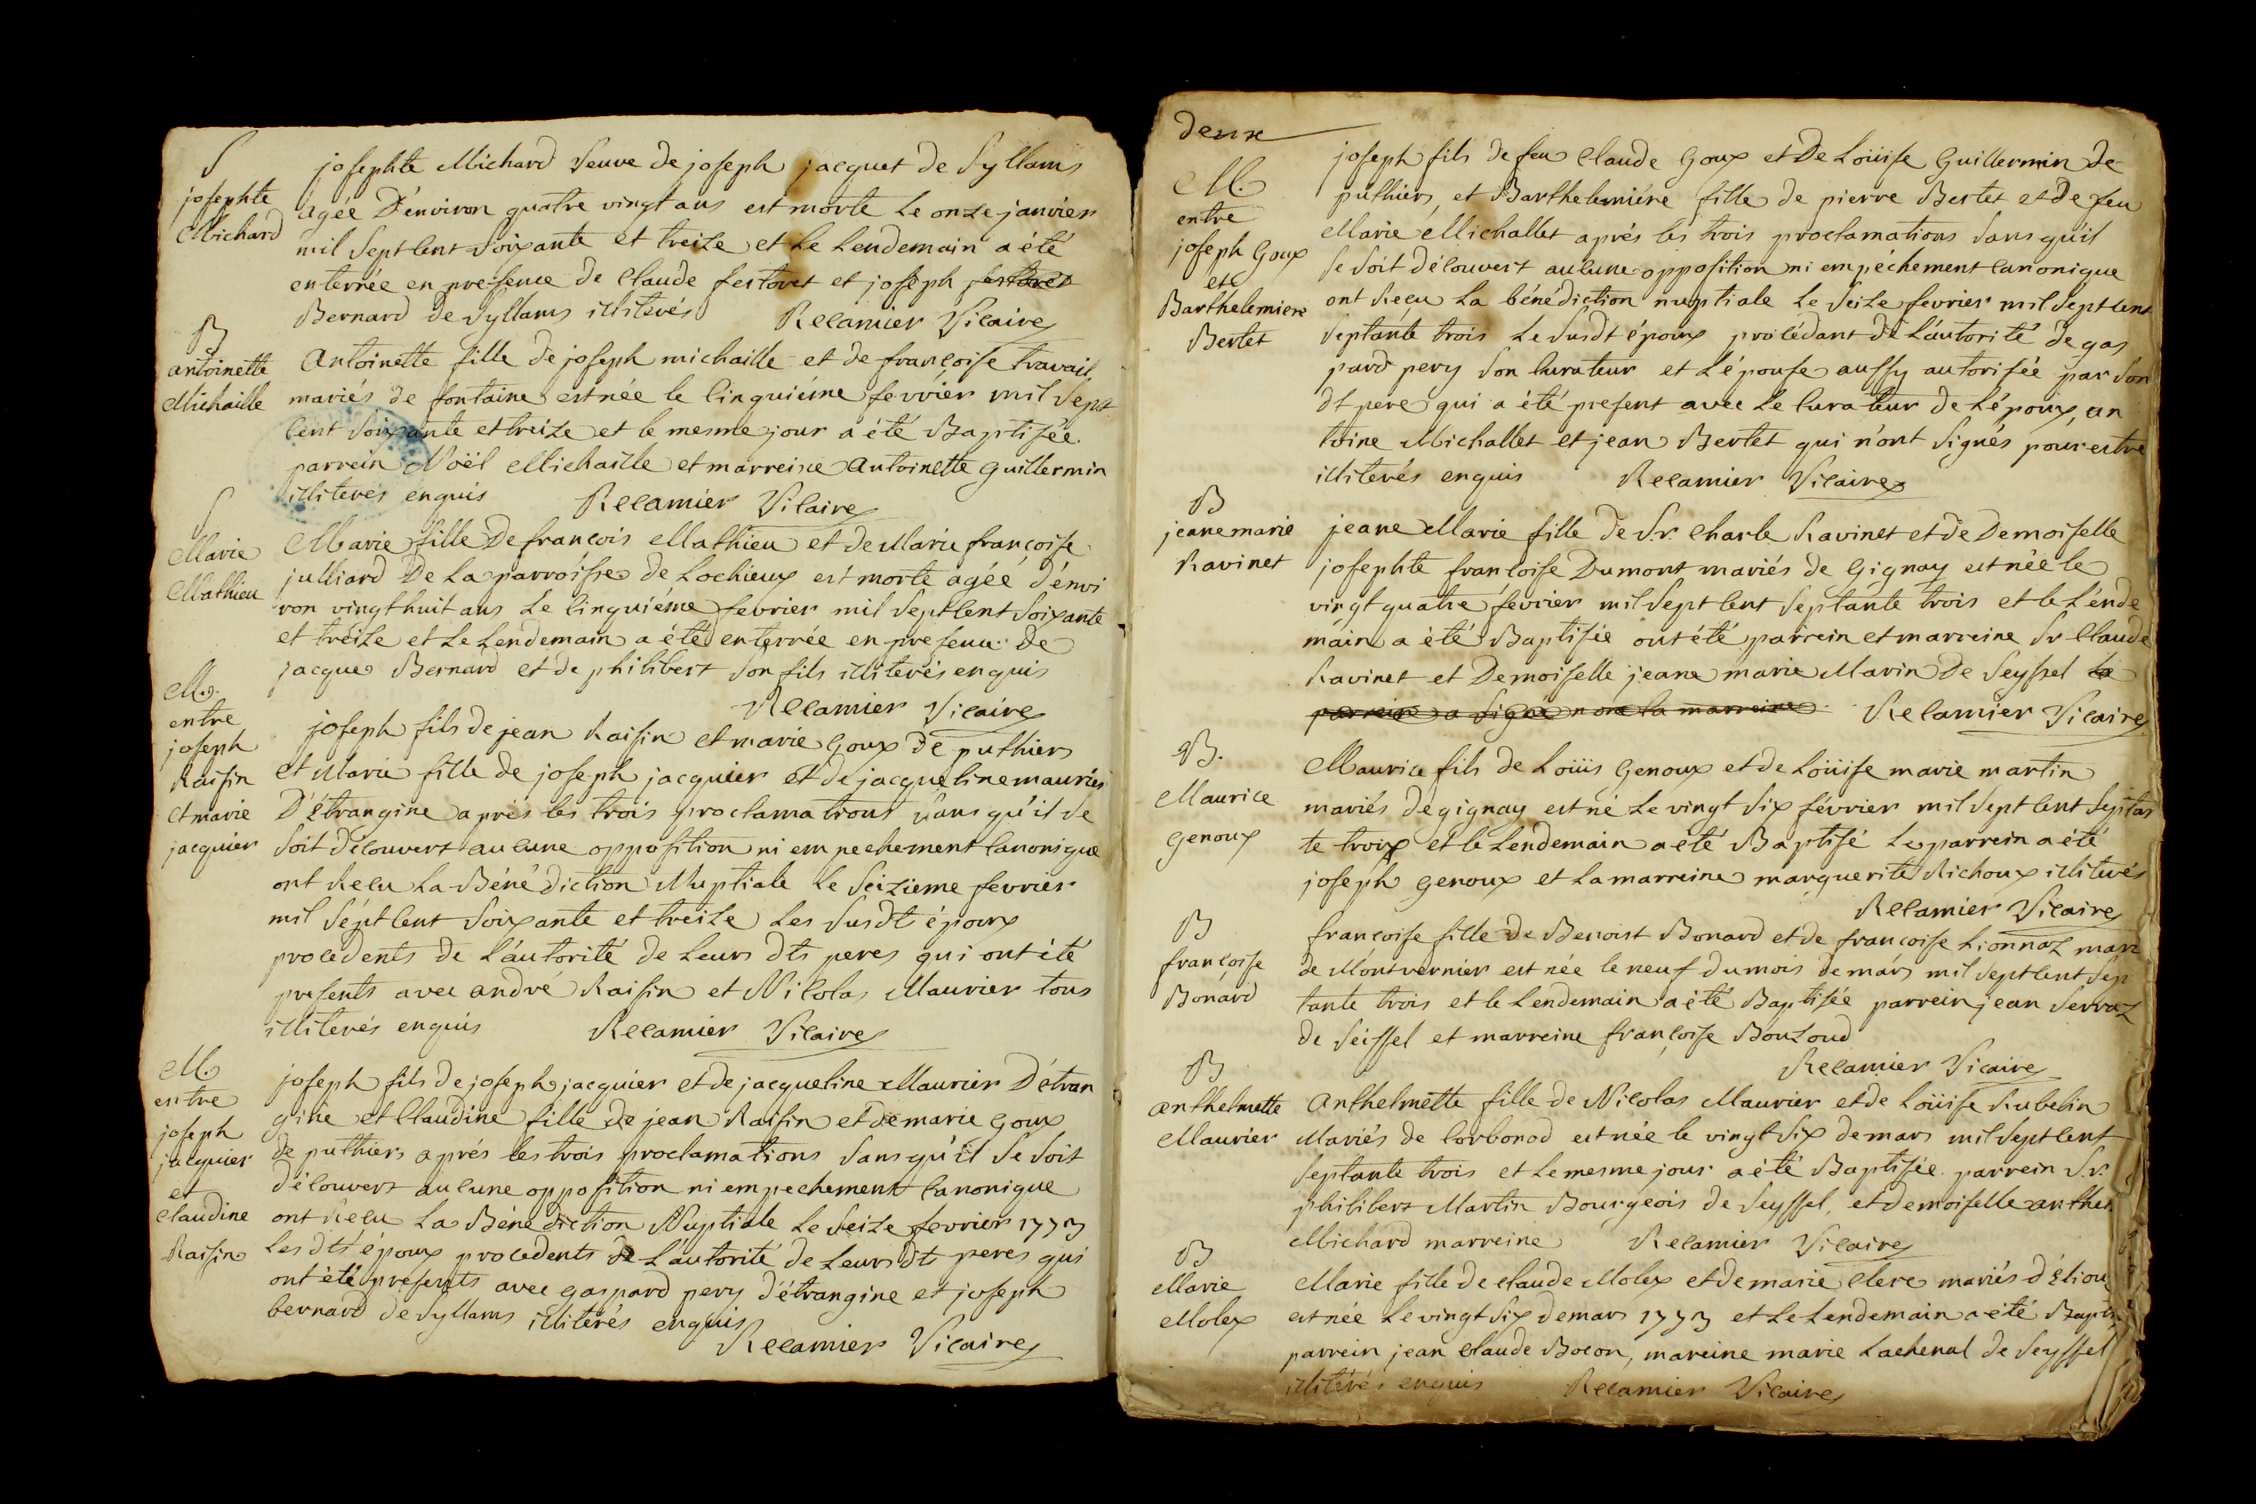 S
josephte
Michard
josephte Michard veuve de joseph jacquet de Syllans
agée D'énviron quatre vingt ans est morte Le onze janvier
mil Sept Cent Soixante et treize et Le Lendemain a été
enterrée en presence de Claude festoret et joseph festoret
Bernard de Syllans illiterés Recamier Vicaire
B
antoinette
Michaille
Antoinette fille de joseph michaille et de françoise travail
mariés de fontaine est née le Cinquiéme fevriér mil Sept
Cent Soixante et treize et le mesme jour a été Baptisée.
parrein Noël Michaille et marreine Antoinette Guillermin
illiterés enquis Recamier Vicaire
S
Marie
Mathieu
Marie fille De françois Mathieu et de Marie françoise
julliard De La parroisse de Lochieux est morte agéé d'énvi
ron vingt huit ans Le Cinquiéme fevrier mil Sept Cent Soixante
et treize et Le Lendemain a été enterrée en presence de
jacque Bernard et de philibert Son fils illiterés enquis
Recamier Vicaire
M.
entre
joseph
Raisin
et marie
jacquier
joseph fils de jean Raisin et marie Goux de puthier
et Marie fille de joseph jacquier et de jacqueline maurier
D'Étrangine aprés les trois proclamations Sans qu'il Se
Soit découvert aucune opposition ni empechement Canonique
ont Recu La Béné diction Nuptiale Le Seizieme fevrier
mil Sépt Cent Soixante et treize Les Susdts époux
procedents de L'áutorité de Leurs dts peres qui ont été
presents avec andre Raisin et Nicolas Maurier tous
illiterés enquis Recamier Vicaire
M.
entre
joseph
jacquier
et
Claudine
Raisin
joseph fils de joseph jacquier et de jacqueline Maurier D'étran
gine et Claudine fille de jean Raisin et de marie Goux
de puthier aprés les trois proclamations Sans qu'il Se Soit
découvert aucune opposition ni empechement Canonique
ont Recu La Béne diction Nuptiale Le Seize fevrier 1773
Les dts époux procedents de L'autorité de Leurs dts peres qui
ont été presents avec gaspard pery d'étrangine et joseph
bernard de Syllans illiterés enquis
Recamier Vicaire
deux
M.
entre
joseph Goux
et
Barthelemiere
Bertet
joseph fils de feu Claude Goux et De Loüise Guillermin de
puthier, et Barthelemiére fille de pierre Bertet et de feu
Marie Michallet aprés les trois proclamations Sans qu'il
se Soit découvert aucune opposition ni empéchement Canonique
ont Recu La bénédiction nuptiale Le Seize fevrier mil Sept Cent
Septante trois Le Susdt époux procédant de L'áutorité de gas
pard pery Son Curateur et L'épouse aussy autorisée par Son
dt pere qui a été present avec Le Curateur de L'époux, an
toine Michallet et jean Bertet qui n'ont Signés pour estre
illiterés enquis Recamier Vicaire
B
jeane marie
Ravinet
jeane Marie fille de S.r Charle Ravinet et de Demoiselle
josephte francoise Dumont mariés de Gignay est née le
vingt quatre fevrier mil Sept Cent Septante trois et le L'énde
main a été Baptisée ont été parrein et marreine Sr Claude
Ravinet et Demoiselle jeane marie Marin De Seyssel Le
parrein a Signé non la marreine Recamier Vicaire
B.
Maurice
genoux
Maurice fils de Loüis Genoux et de Loüise marie martin
mariés de gignay est né Le vingt Six février mil Sept Cent Septan
te trois et le Lendemain a été Baptisé Le parrein a été
joseph genoux et La marreine marguerite Richoux illiterés
Recamier Vicaire
B
francoise
Bonard
francoise fille de Benoist Bonard et de francoise Lionnaz mari
de Montvernier est née le neuf du mois de mars mil Sept Cent Sep
tante trois et le Lendemain a été Baptisée parrein jean Serraz
de Seissel et marreine françoise Bouzoud
Recamier Vicaire
B
anthelmette
Maurier
Anthelmette fille de Nicolas Maurier et de Loüise Rubelin
Mariés de Corbonod est née le vingt Six de mars mil Sept Cent
Septante trois et Le mesme jour a été Baptisée. parrein S.r
philibert Martin Bourgeois de Seyssel, et demoiselle anthel
Michard marreine Recamier Vicaire
B
Marie
Molex
Marie fille de Claude Molex et de marie Clerc mariés d'Éliou
est née Le vingt Six de mars 1773 et Le Lendemain a été Bapti
parrein jean Claude Bocon, mareine marie Lachenal de Seyssel
illiterés enquis Recamier Vicaire